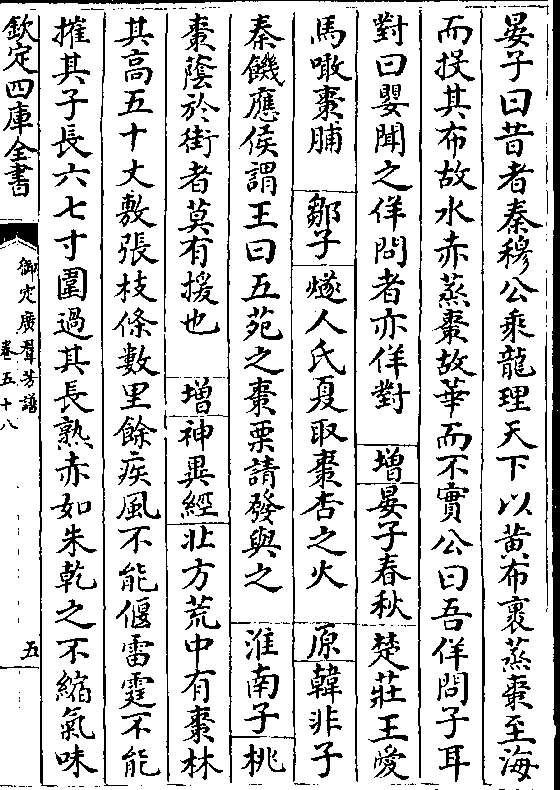 晏子曰昔者秦穆公乘龍理天下以黄布裹蒸棗至海
而投其布故水赤蒸棗故華而不實公曰吾佯問子耳
對曰嬰聞之佯問者亦佯對 增晏子春秋 楚莊王愛
馬噉棗脯 鄒子 燧人氏夏取棗杏之火 原韓非子
秦饑應侯謂王曰五苑之棗栗請發與之 淮南子 桃
棗蔭於街者莫有援也 增神異經 北方荒中有棗林
其高五十丈敷張枝條數里餘疾風不能偃雷霆不能
摧其子長六七寸圍過其長熟赤如朱乾之不縮氣味
欽定四庫全書
御定廣群芳譜
卷五十八
五